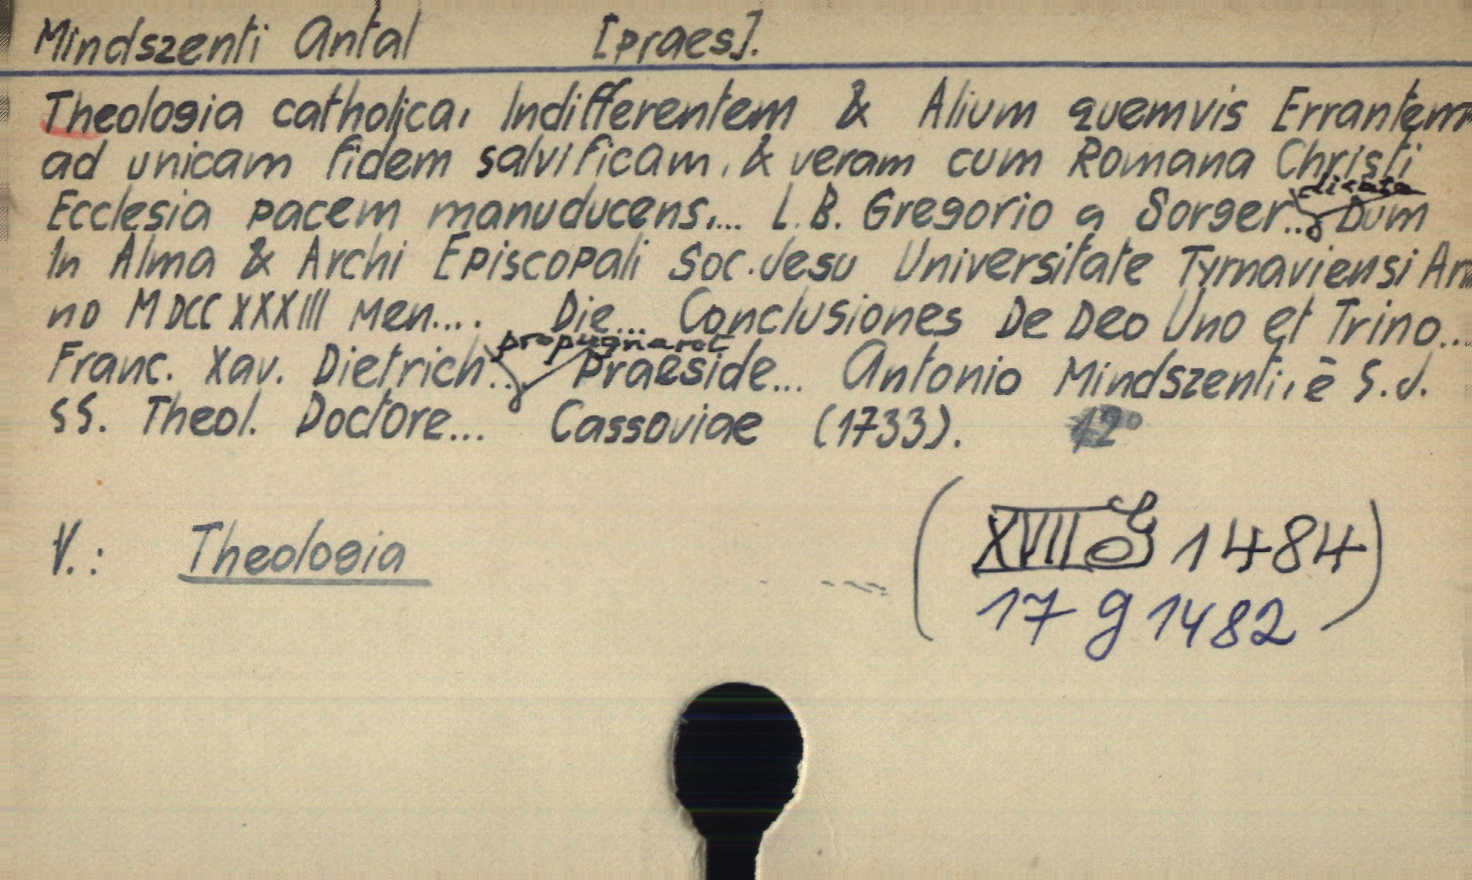 Mindszenti Antal [praes].
Theologia catholica, Indifferentem & Alium quemvis Errantem
ad unicam fidem salvificam, & veram cum Romana Christi
Ecclesia pacem manuducens,... L.B. Gregorio a Sorger... dicata Dum
In Alma & Archi Episcopali Soc. Jesu Universitate Tyrnaviensi An
no MDCCXXXIII Men.... Die... Conclusiones De Deo Uno et Trino...
Franc. Xav. Dietrich... propugnaret Praeside... Antonio Mindszenti, è S.J.
SS. Theol. Doctore... Cassoviae (1733). 12°
V.: Theologia
(XVII 1484)
17 g 1482